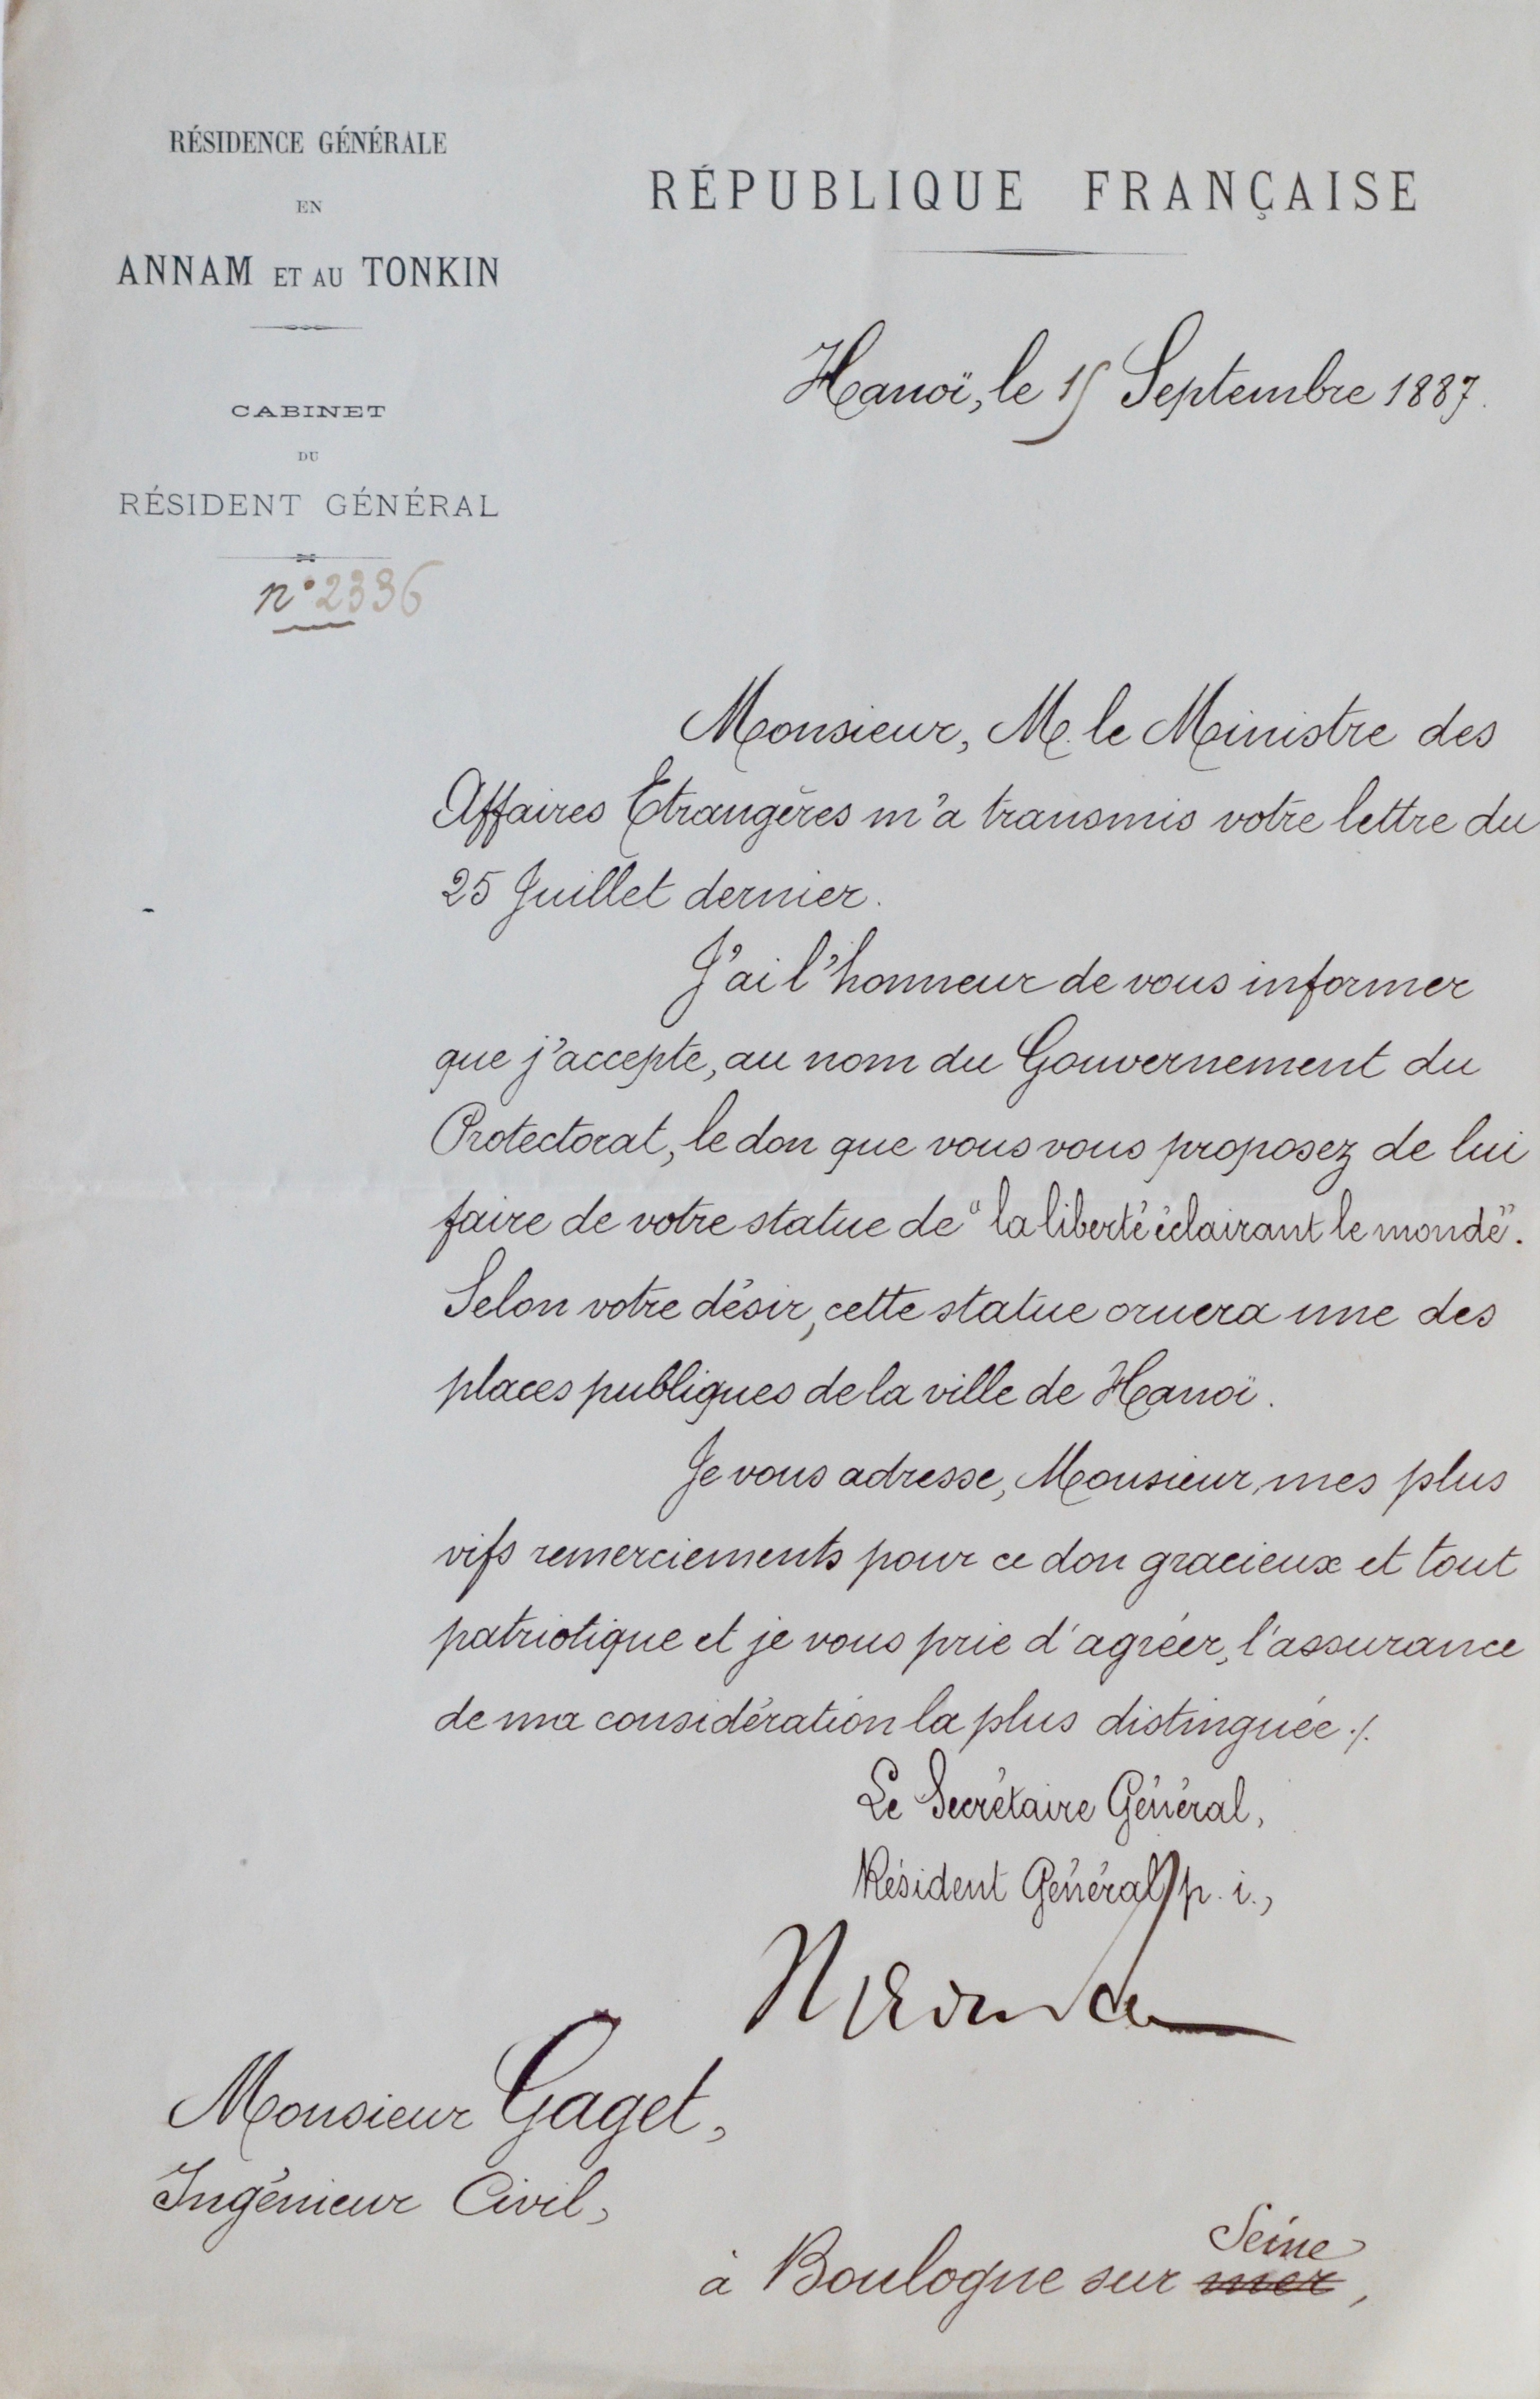 RÉSIDENCE GÉNÉRALE
EN
ANNAM ET AU TONKIN
CABINET
DU
RÉSIDENT GÉNÉRAL
n° 2336
RÉPUBLIQUE FRANÇAISE
Hanoï, le 15 Septembre 1887.
Monsieur, M. le Ministre des
Affaires Etrangères m'a transmis votre lettre du
25 Juillet dernier.
J'ai l'honneur de vous informer
que j'accepte, au nom du Gouvernement du
Protectorat, le don que vous vous proposez de lui
faire de votre statue de "la liberté éclairant le monde".
Selon votre désir, cette statue ornera une des
places publiques de la ville de Hanoï.
Je vous adresse, Monsieur, mes plus
vifs remerciements pour ce don gracieux et tout
patriotique et je vous prie d'agréer, l'assurance
de ma considération la plus distinguée ./.
Le Secrétaire Général,
Résident Général p. i.,
Monsieur Gaget,
Ingénieur Civil,
Seine
à Boulogne sur mer,